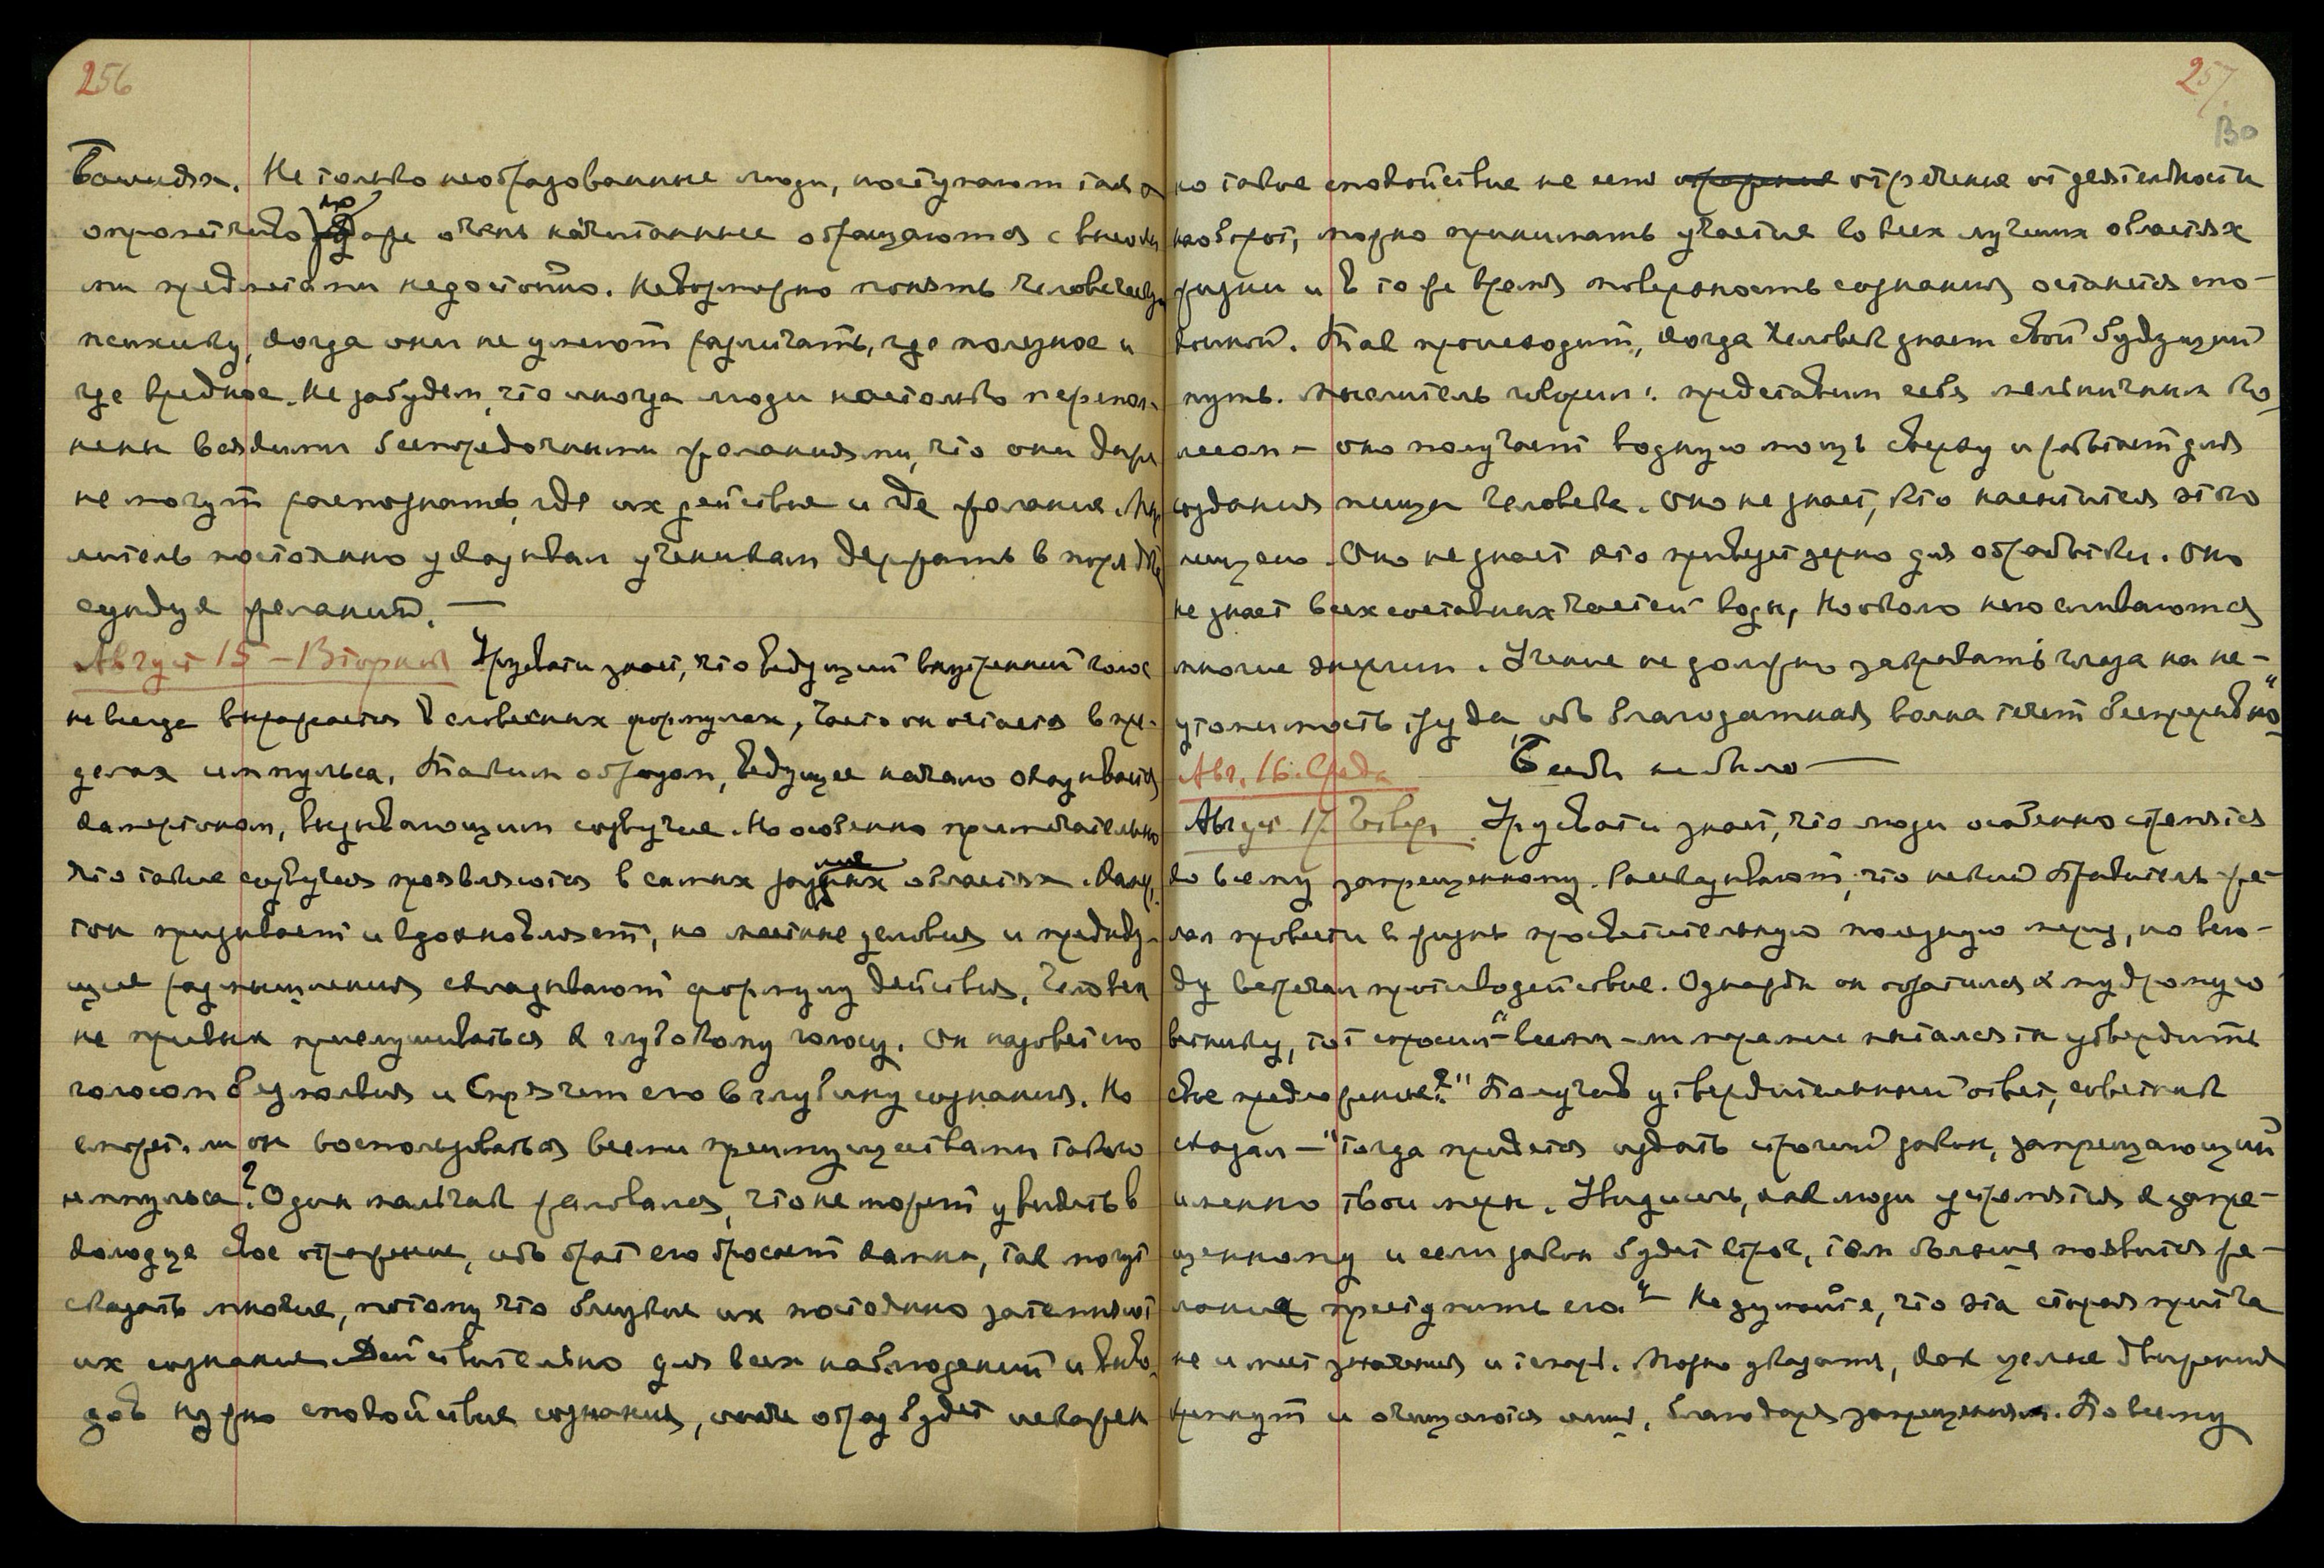 256
башмаках. Не только необразованные люди, поступают так
опрометчиво, но даже очень начитанные обращаются с высоки
ми предметами недостойно. Невозможно понять человеческую
психику, когда они не умеют различать, где полезное и
где вредное. Не забудем, что иногда люди настолько перепол
нены всякими беспорядочными желаниями, что они даже
не могут распознать, где их действие и где желание. Мыс
литель постоянно указывал ученикам держать в порядке
сундук желаний. —
Август 15 – Вторник Урусвати знает, что ведущий внутренний голос
не всегда выражается в словесных формулах, часто он остается в пре-
делах импульса. Таким образом, ведущее начало оказывается
камертоном, вызывающим созвучие. Но особенно примечательно
что такие созвучия проявляются в самых разных областях. Камер
тон призывает и вдохновляет, но местные условия и предыду-
щие размышления складывают формулу действия. Человек
не привык прислушиваться к глубокому голосу. Он назовет его
голосом безмолвия и спрячет его в глубину сознания. Но
сможет ли он воспользоваться всеми преимуществами такого
импульса? Один мальчик жаловался, что не может увидеть в
колодце свое отражение, ибо брат его бросает камни, так могут
сказать многие, потому что близкие их постоянно затемняют
их сознание. Действительно для всех наблюдений и выво
дов нужно спокойствие сознания, иначе образ будет искажен
257
но такое спокойствие не есть отречение от деятельности
наоборот, можно принимать участие во всех лучших областях
жизни и в то же время поверхность сознания останется спо-
койной. Так происходит, когда человек знает свой будущий
путь. Мыслитель говорил: представим себя мельничным ко
лесом – оно получает водную мощь сверху и работает для
создания пищи человека. Оно не знает, кто насытится этою
пищею. Оно не знает кто привезет зерно для обработки. Оно
не знает всех составных частей воды, но около него сливаются
многие энергии. Учение не должно закрывать глаза на не-
утомимость труда ибо благодатная волна течет беспрерывно"
Авг. 16. Среда Беседы не было —
Август 17 Четверг Урусвати знает, что люди особенно стремятся
ко всему запрещенному. Рассказывают, что некий Правитель же-
лал провести в жизнь просветительную полезную меру, но всю-
ду встречал противодействие. Однажды он обратился к мудрому со
ветнику, тот спросил – "всеми ли мерами пытался ты утвердить
свое предложение?" Получив утвердительный ответ, советник
сказал – "тогда придется издать строгий закон, запрещающий
именно твои меры. Увидишь, как люди устремятся к запре-
щенному и если закон будет строг, тем больше появится же-
лание преступить его." – Не думайте, что эта старая притча
не имеет значения и теперь. Можно указать, как целые движения
крепнут и очищаются лишь, благодаря запрещениям. По всему